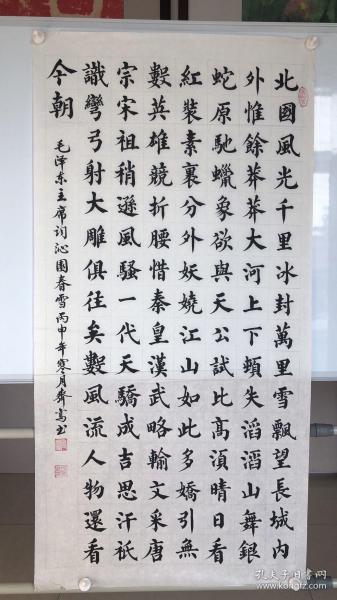 北國風光千里冰封萬里雪飄望長城內
外惟餘莽莽大河上下頓失滔滔山舞銀
蛇原馳蠟象欲與天公試比高須晴日看
紅裝素裹分外妖嬈江山如此多嬌引無
數英雄競折腰惜秦皇漢武略輸文采唐
宗宋祖稍遜風騷一代天驕成吉思汗祇
識彎弓射大雕俱往矣數風流人物還看
今朝
毛泽东主席词沁園春雪丙申年寒月齊书
孔夫子旧书网